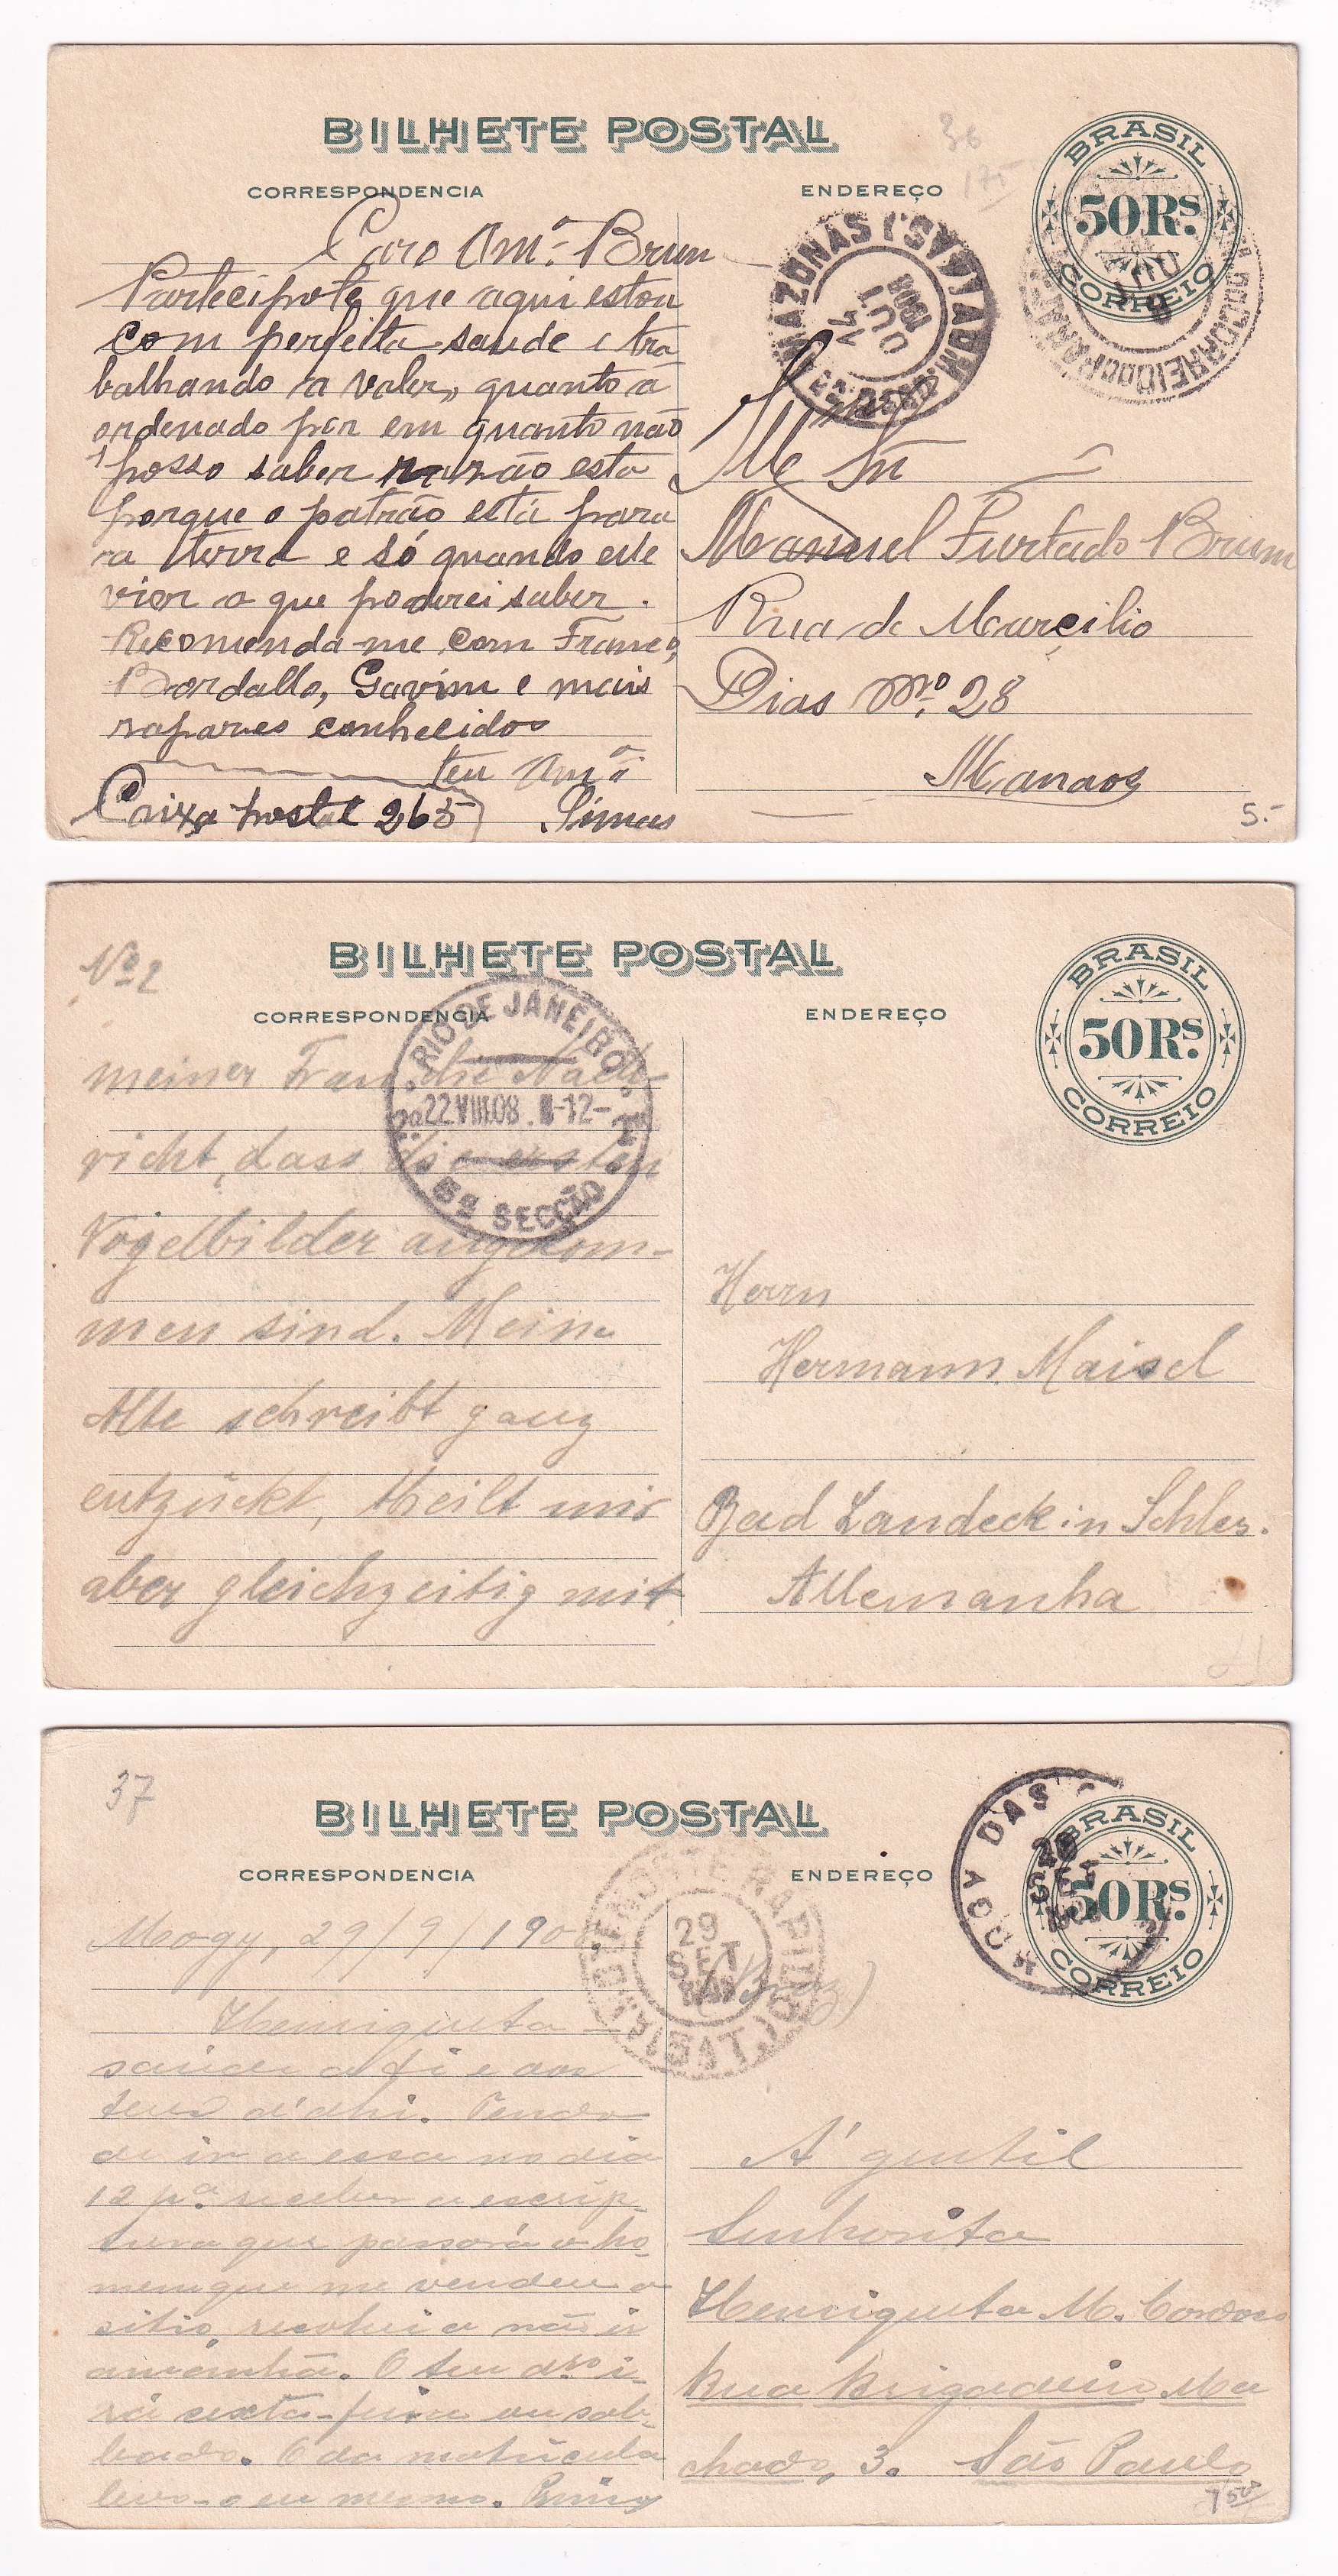 BILHETE POSTAL
CORRESPONDENCIA
ENDEREÇO
36
175
BRASIL
50 Rs.
CORREIO
AMAZONAS
14
OUT
1908
Caro Amº. Brum
Partecipote que aqui estou
com perfeita saude e tra
balhando a valer, quanto a
ordenado por em quanto não
posso saber razão esta
porque o patrão está para
a terra e só quando este
vier o que poderei saber.
Recomenda-me com Franco,
Bordallo, Gavim e mais
rapazes conhecidos
teu Amº
Caixa postal 265
Simas
Manuel Furtado Brum
Rua de Marçilio
Dias Nº. 28
Manaos
5.-
Nº 2
BILHETE POSTAL
CORRESPONDENCIA
ENDEREÇO
BRASIL
50 Rs.
CORREIO
RIO DE JANEIRO
22 VIII.08. -12-
5ª SECÇÃO
meiner Frau die Nach
richt, dass die ersten
Vogelbilder angekom-
men sind. Meine
Alte schreibt ganz
entzückt, theilt mir
aber gleichzeitig mit
Herrn
Hermann Maisel
Bad Landeck in Schles.
Allemanha
37
BILHETE POSTAL
CORRESPONDENCIA
ENDEREÇO
BRASIL
50 Rs.
CORREIO
MOGY DAS
SET
29
SET
Mogy, 29/9/190
(Braz)
Henriqueta
saúdo a ti e aos
teus d'ahi. Tendo
de ir a essa no dia
12 pª. receber a escrip-
tura que passará o ho-
mem que me vendeu o
sitio, resolvi a não ir
amanhã. O teu
rá sexta-feira ou sab-
bado. O da matricula
levo-o eu mesmo.
Á gentil
Senhorita
Henriqueta M. Cardoso
Rua Brigadeiro Ma
chado, 3. São Paulo
750